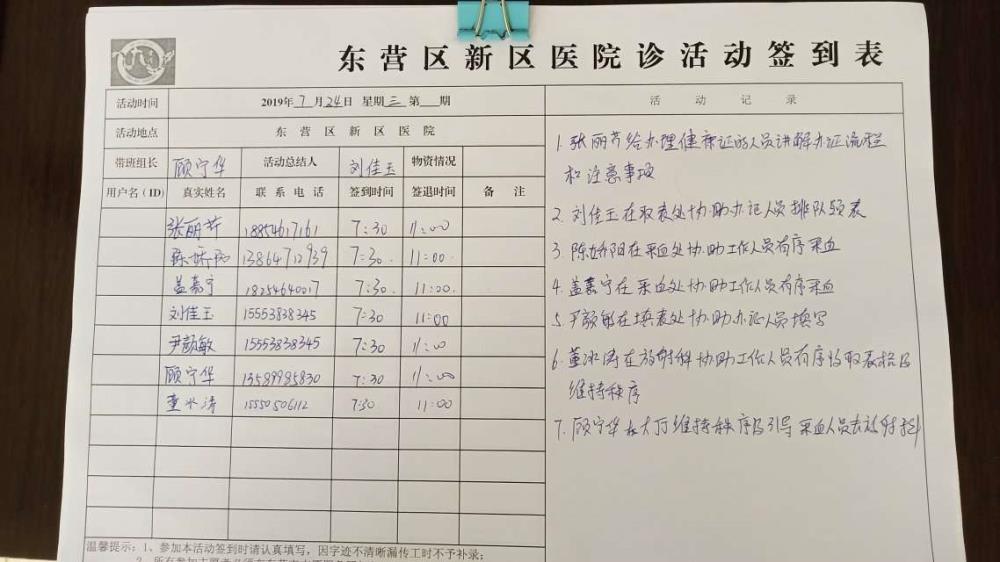 东营区新区医院诊活动签到表
活动时间 2019年7月24日 星期三 第 期
活动地点 东营区新区医院
带班组长 顾宁华 活动总结人 刘佳玉 物资情况
用户名(ID) 真实姓名 联系电话 签到时间 签退时间 备注
张丽芹 18854617161 7:30 11:00
陈娇阳 13864712939 7:30 11:00
盖嘉宁 18254640017 7:30 11:00
刘佳玉 15553838345 7:30 11:00
尹颜敏 15553838345 7:30 11:00
顾宁华 13589985830 7:30 11:00
董水清 15550506112 7:30 11:00
温馨提示:1、参加本活动签到时请认真填写,因字迹不清晰漏传工时不予补录;
活动记录
1. 张丽芹给办理健康证的人员讲解办证流程
和注意事项
2. 刘佳玉在取表处协助办证人员排队领表
3. 陈娇阳在采血处协助工作人员有序采血
4. 盖嘉宁在采血处协助工作人员有序采血
5. 尹颜敏在填表处协助办证人员填写
6. 董冰涛在放射科协助工作人员有序收取表格及
维持秩序
7. 顾宁华在大厅维持秩序及引导采血人员去放射科